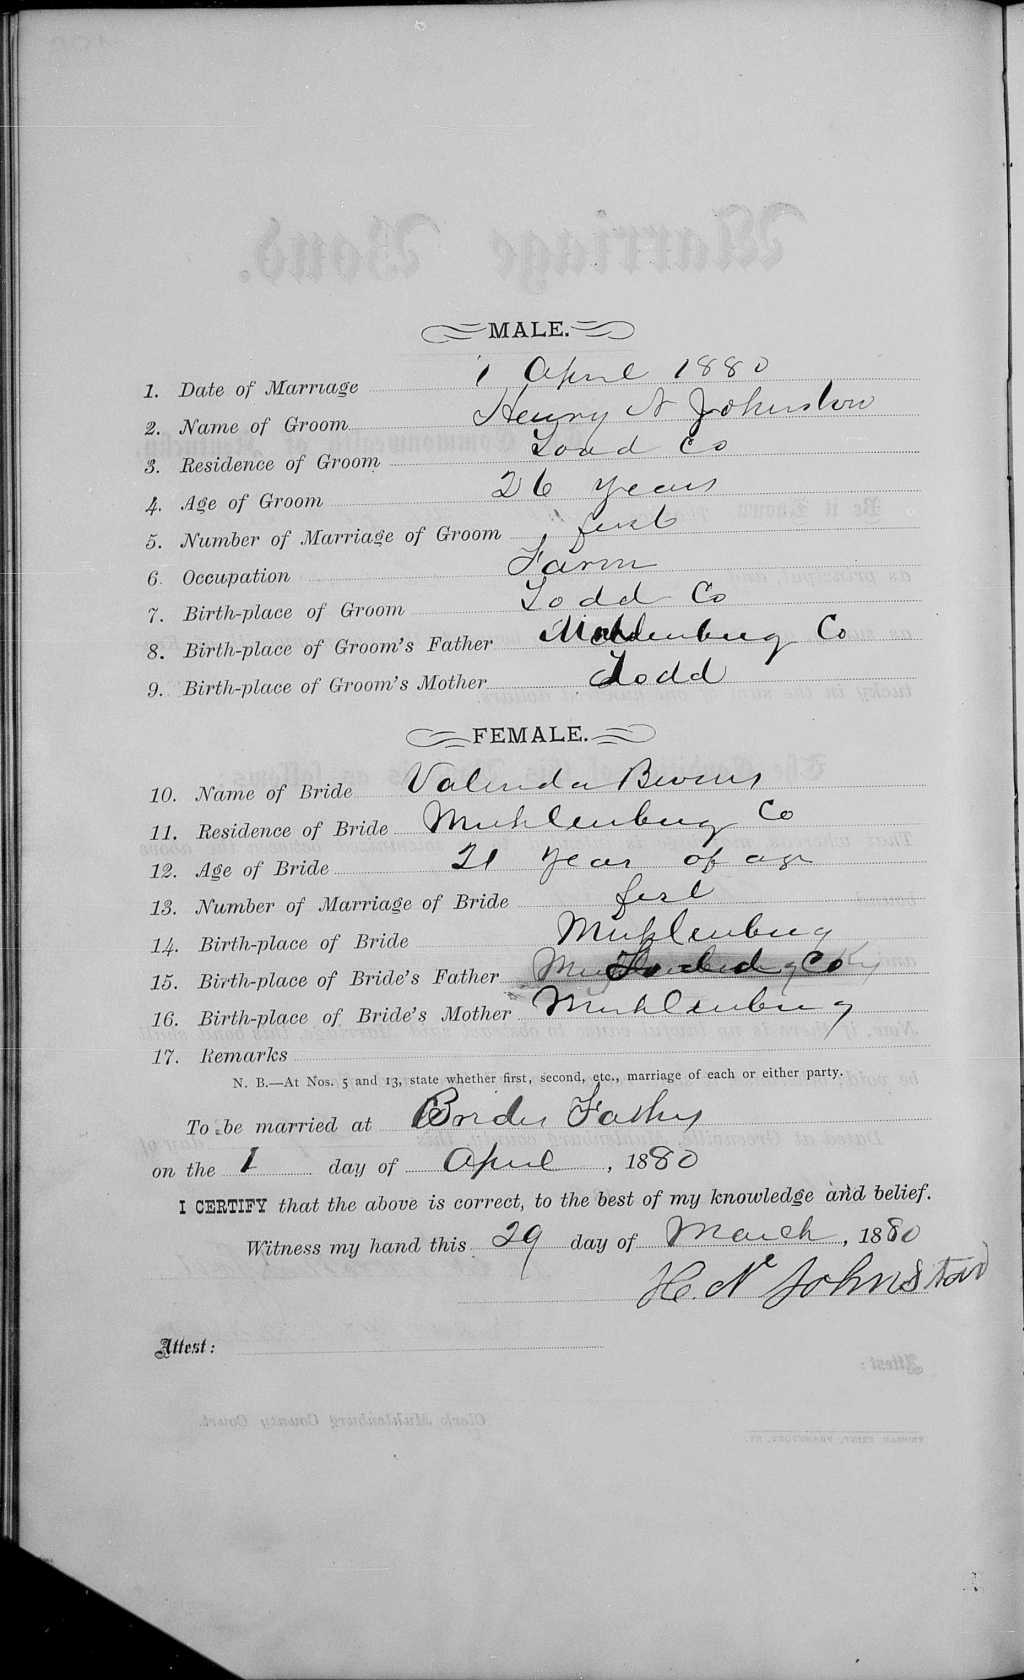 MALE.
1. Date of Marriage 1 April 1880
2. Name of Groom Henry N Johnston
3. Residence of Groom Todd Co
4. Age of Groom 26 years
5. Number of Marriage of Groom first
6. Occupation Farm
7. Birth-place of Groom Todd Co
8. Birth-place of Groom's Father Muhlenburg Co
9. Birth-place of Groom's Mother Todd
FEMALE.
10. Name of Bride Valinda Bivens
11. Residence of Bride Muhlenburg Co
12. Age of Bride 21 year of age
13. Number of Marriage of Bride first
14. Birth-place of Bride Muhlenburg
15. Birth-place of Bride's Father Co Ky
16. Birth-place of Bride's Mother Muhlenburg
17. Remarks
N. B.—At Nos. 5 and 13, state whether first, second, etc., marriage of each or either party.
To be married at Brides Fathers
on the 1 day of April, 1880
I CERTIFY that the above is correct, to the best of my knowledge and belief.
Witness my hand this 29 day of March, 1880
H. N Johnston
Attest: